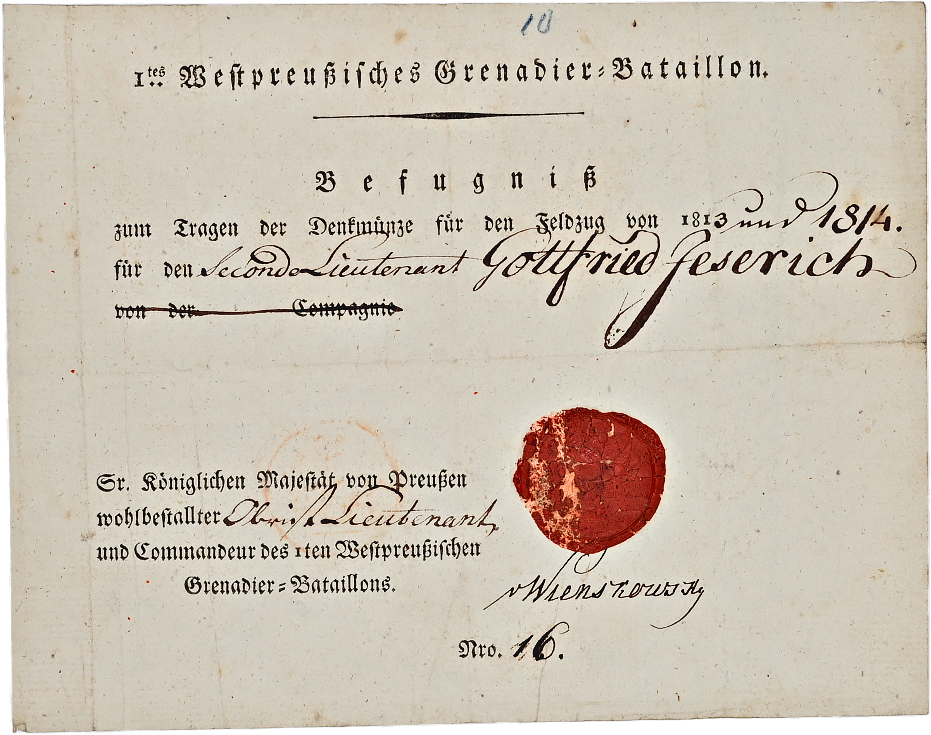 10
1tes Westpreußisches Grenadier-Bataillon.
Befugniß
zum Tragen der Denkmünze für den Feldzug von 1813 und 1814.
für den Seconde Lieutenant Gottfried Jeserich
von der Compagnie
Sr. Königlichen Majestät von Preußen
wohlbestallter Obrist Lieutenant,
und Commandeur des 1ten Westpreußischen
Grenadier-Bataillons.
vWienskowsky
Nro. 16.